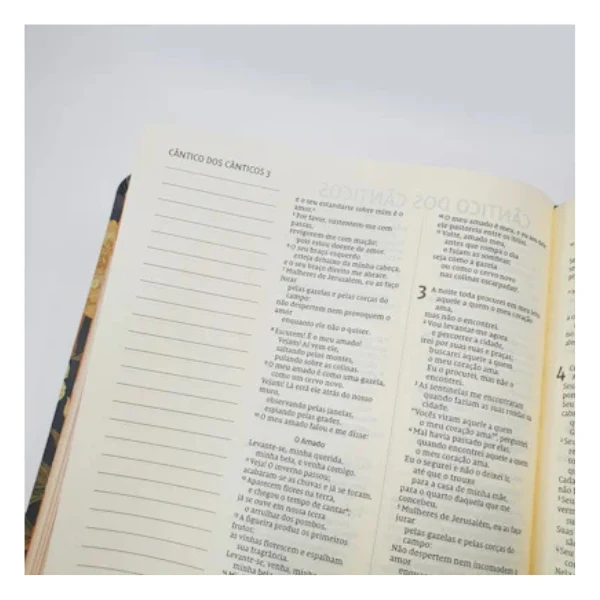 CÂNTICO DOS CÂNTICOS 3
e o seu estandarte sobre mim é o
amor.
Por favor, sustentem-me com
passas,
revigorem-me com maçãs!
pois estou doente de amor.
O seu braço esquerdo
esteja debaixo da minha cabeça,
e o seu braço direito me abrace.
7 Mulheres de Jerusalém, eu as faço
jurar
pelas gazelas e pelas corças do
campo:
não despertem nem provoquem o
amor
enquanto ele não o quiser.
8 Escutem! É o meu amado!
Vejam! Aí vem ele,
saltando pelos montes,
pulando sobre as colinas.
9 O meu amado é como uma gazela,
como um cervo novo.
Vejam! Lá está ele atrás do nosso
muro,
observando pelas janelas,
espiando pelas grades.
10 O meu amado falou e me disse:
O Amado
Levante-se, minha querida,
minha bela, e venha comigo.
11 Veja! O inverno passou;
acabaram-se as chuvas e já se foram.
12 Aparecem flores na terra,
e chegou o tempo de cantar;
já se ouve em nossa terra
o arrulhar dos pombos.
13 A figueira produz os primeiros
frutos;
as vinhas florescem e espalham
sua fragrância.
Levante-se, venha, minha
minha bela
CÂNTICO DOS CÂNTICOS
16 O meu amado é meu, e eu sou
ele pastoreia entre os lírios.
17 Volte, amado meu,
antes que rompa o dia
e fujam as sombras;
seja como a gazela
ou como o cervo novo
nas colinas escarpadas.
3 A noite toda procurei em meu leito
aquele a quem o meu coração
ama,
mas não o encontrei.
2 Vou levantar-me agora
e percorrer a cidade,
irei por suas ruas e praças;
buscarei aquele a quem
o meu coração ama.
Eu o procurei, mas não o
encontrei.
3 As sentinelas me encontraram
quando faziam as suas rondas na
cidade.
"Vocês viram aquele a quem
o meu coração ama?", perguntei.
4 Mal havia passado por elas,
quando encontrei aquele a quem
o meu coração ama.
Eu o segurei e não o deixei ir,
até que o trouxe
para a casa de minha mãe,
para o quarto daquela que me
concebeu.
5 Mulheres de Jerusalém, eu as faço
jurar
pelas gazelas e pelas corças do
campo:
Não despertem nem incomodem o
amor
4
Seu